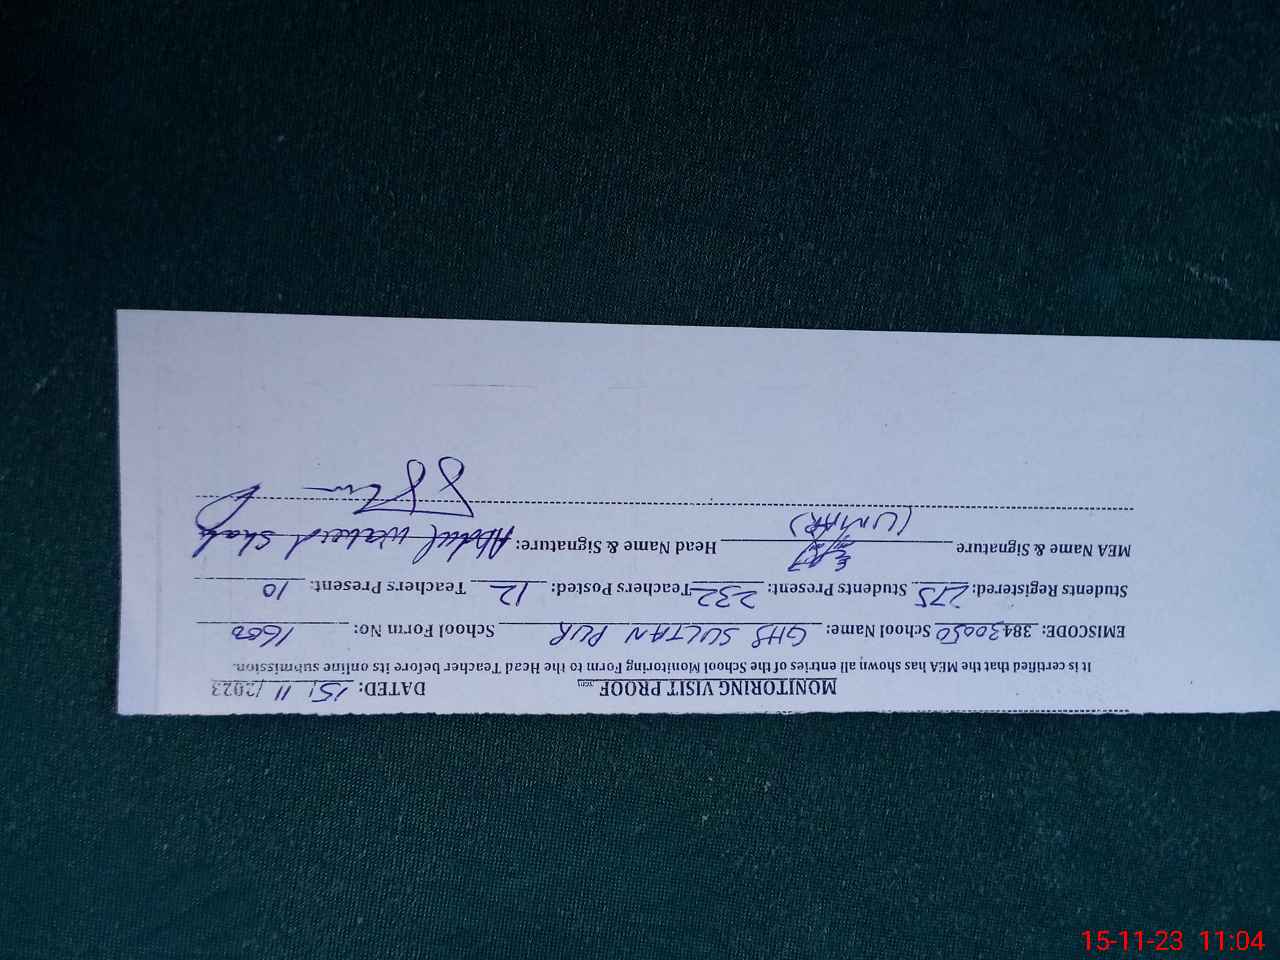 MONITORING VISIT PROOF DATED: 15/11/2023
It is certified that the MEA has shown all entries of the School Monitoring Form to the Head Teacher before its online submission.
EMISCODE: 38430050 School Name: GHS SULTAN PUR School Form No: 1600
Students Registered: 275 Students Present: 232 Teachers Posted: 12 Teachers Present: 10
MEA Name & Signature Head Name & Signature: Abdul Waheed Shah
(UMAR)
15-11-23 11:04